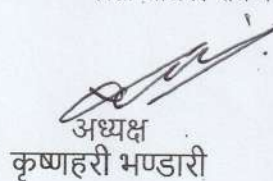 अध्यक्ष
कृष्णहरी भण्डारी